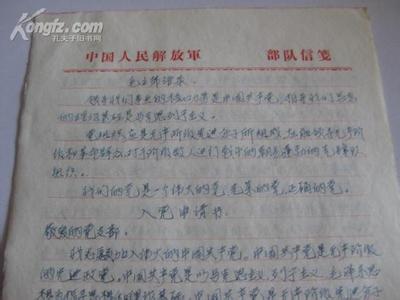 Kongfz.com
孔夫子旧书网
中国人民解放軍 部队信笺
毛主席语录
领导我们事业的核心力量是中国共产党,指导我们思想
的理论基础是马克思列宁主义。
党组织应是无产阶级先进分子所组成,应能领导无产阶
级和革命群众对于阶级敌人进行战斗的朝气蓬勃的先锋队
组织。
我们的党是一个伟大的党,光荣的党,正确的党。
入党申请书
敬爱的党支部:
我志愿加入伟大的中国共产党。中国共产党是无产阶级
的先进政党。中国共产党是以马克思主义、列宁主义、毛泽东思